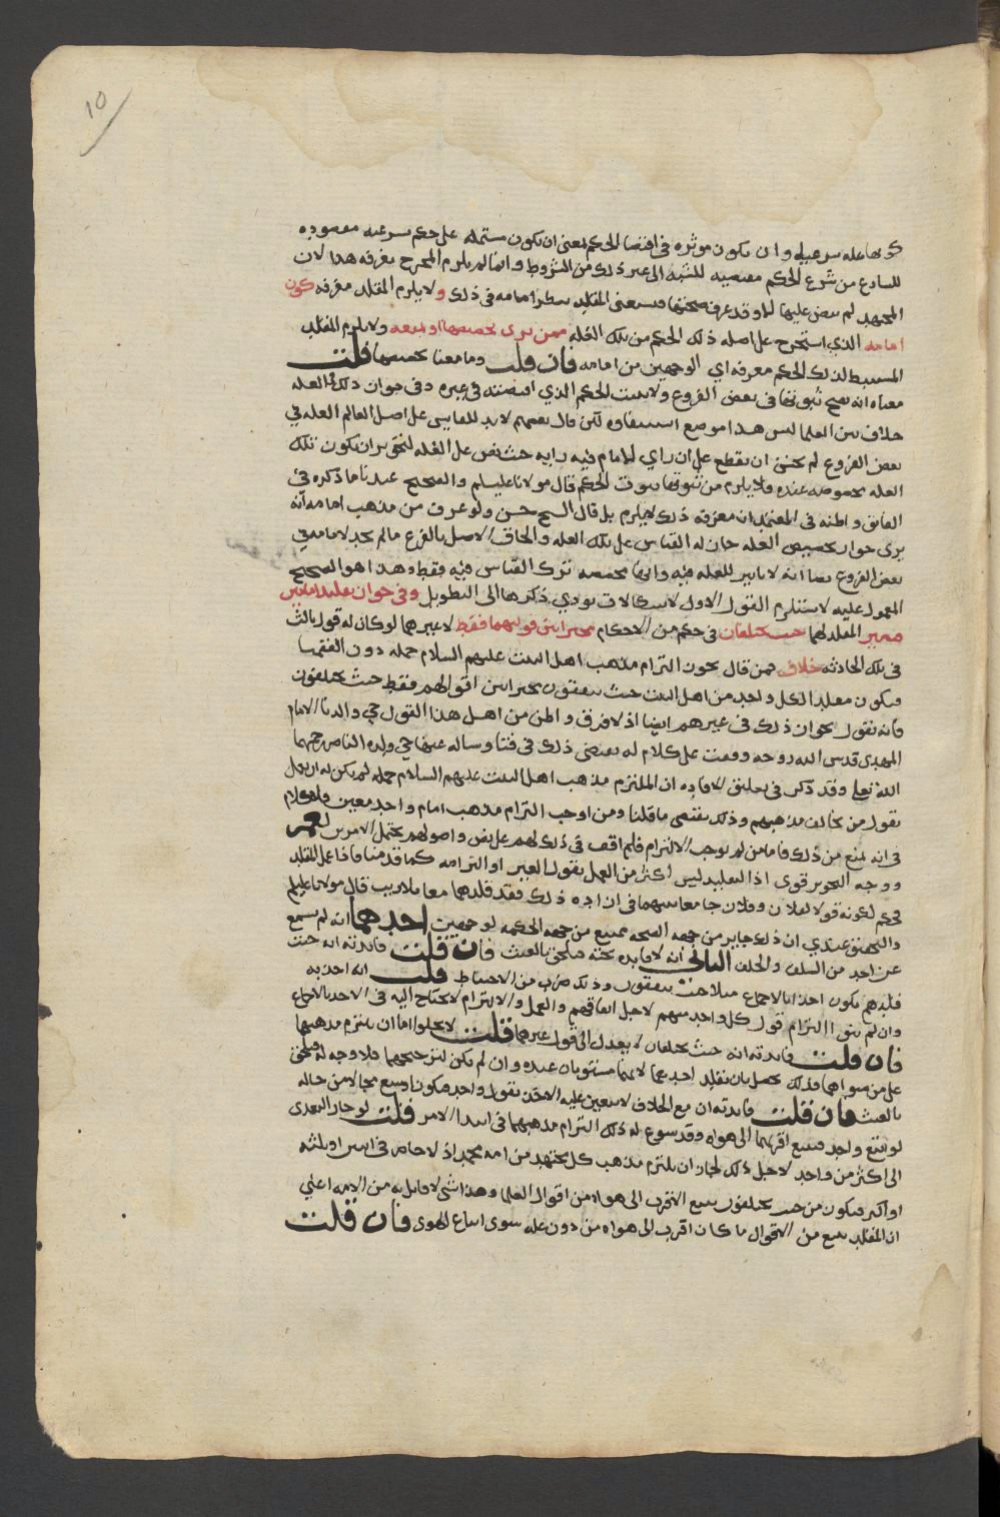 ١٥
كونها عله شرعيه وان تكون موثره في اقتضا الحكم بمعنى ان تكون مشتمله على حكم شرعيه مقصوده
للشارع من شرع الحكم مقتضيه للشبه الى غير ذلك من الشروط وانما لم يلزم المخرج معرفه هذا لان
المجتهد لم ينص عليها الا وقد عرف صحتها فيستغني المقلد بنظر امامه في ذلك ولا يلزم المقلد معرفه كون
امامه الذي استخرج على اصله ذلك الحكم من تلك العله ممن يرى تخصيصها او منعه ولا يلزم المقلد
المستنبط لذلك الحكم معرفه اي الوجهين من امامه فان قلت وما معنا تخصيصها قلت
معناه انه يصح ثبوتها في بعض الفروع ولا يثبت الحكم الذي اقتضته في غيره وفي جواز ذلك في العله
خلاف بين العلما ليس هذا موضع استيفاوه لكن قال بعضهم لا بد للقايس على اصل العالم العله في
بعض الفروع لم يحسن ان يقطع على ان راي الامام فيه رايه حيث نص على العله لتجويز ان تكون تلك
العله مخصوصه عنده فلا يلزم من ثبوتها ثبوت الحكم قال مولانا عليلم والصحيح عندنا ما ذكره في
الفايق واظنه في المعتمد ان معرفه ذلك لا يلزم بل قال الشيخ حسن ولو عرف من مذهب امامه انه
يرى جواز تخصيص العله جاز له القياس على تلك العله والحاق الاصل بالفرع مالم يجد لامامه في
بعض الفروع نصا انه لا تاثير للعله فيه وانها مخصصه ترك القياس فيه فقط وهذا هو الصحيح
المعمول عليه لا يستلزم القول الاول لاشكالات يودي ذكرها الى التطويل وفي جواز تقليد امامين
فيصير المقلد لهما حيث يختلفان في حكم من الاحكام مخيرا بين قوليهما فقط لا غيرهما لو كان له قول ثالث
في تلك الحادثه خلاف فمن قال بجواز التزام مذهب اهل البيت عليهم السلام جمله دون الفقها
ويكون مقلدا لكل واحد من اهل البيت حيث يتفقون مخيرا بين اقوالهم فقط حيث يختلفون
فانه يقول بجواز ذلك في غيرهم ايضا اذ لا فرق واظن من اهل هذا القول حي والدنا الامام
المهدي قدس الله روحه ووقفت على كلام له يقتضي ذلك في فتيا وساله عنها حي ولده الناصر رحمهما
الله تعلى وقد ذكر في تعليق الافاده ان الملتزم مذهب اهل البيت عليهم السلام جمله لم يكن له ان يعمل
بقول من خالف مذهبهم وذلك يقتضي ما قلنا ومن اوجب التزام مذهب امام واحد معين فلا كلام
في انه يمنع من ذلك فاما من لم يوجب الالتزام فلم اقف في ذلك لهم على نص واصولهم تحتمل الامرين
ووجه التجويز قوي اذ التقليد ليس اكثر من العمل بقول الغير او التزامه كما قدمنا فاذا عمل المقلد
بحكم لكونه قولا لفلان وفلان جامعا بينهما في ان اجره ذلك فقد قلدهما معا بلا ريب قال مولانا عليلم
والتحقيق عندي ان ذلك جايز من جهه الصحه ممتنع من جهه الحكمه لوجهين احدهما انه لم يسمع
عن احد من السلف والخلف الثاني انه لا فايده تحته فيلحق بالعبث فان قلت فايدته انه حيث
قلدهم يكون اخذا بالاجماع مثلا حيث يتفقون وذلك ضرب من الاحتياط قلت انه اخذ به
وان لم ينو التزام قول كل واحد منهم لاجل اتفاقهم والعمل والالتزام لا يحتاج اليه في الاخذ بالاجماع
فان قلت فايدته انه حيث يختلفان لا يعدل الى قول غيرهما قلت لا يخلوا اما ان يلتزم مذهبهما
على من سواهما فذلك يحصل بان يقلد احدهما لانهما مستويان عنده وان لم يكن لترجيحهما فلا وجه له فيلحق
بالعبث فان قلت فايدته ان مع الخلاف لا يتعين عليه الاخذ بقول واحد فيكون اوسع مجالا من حاله
لو اتبع واحد فيتبع اقربهما الى هواه وقد سوغ له ذلك التزام مذهبهما في ابتدا الامر قلت لو جاز التعدي
الى اكثر من واحد لاجل ذلك لجاز ان يلتزم مذهب كل مجتهد من امه محمد اذ لا حاصر في اثنين او ثلثه
او اكثر فيكون من حيث يختلفون يتبع الاقرب الى هواه من اقوال العلما وهذا شي لا قايل به من الامه اعني
ان المقلد يتبع من الاقوال ما كان اقرب الى هواه من دون عله سوى اتباع الهوى فان قلت